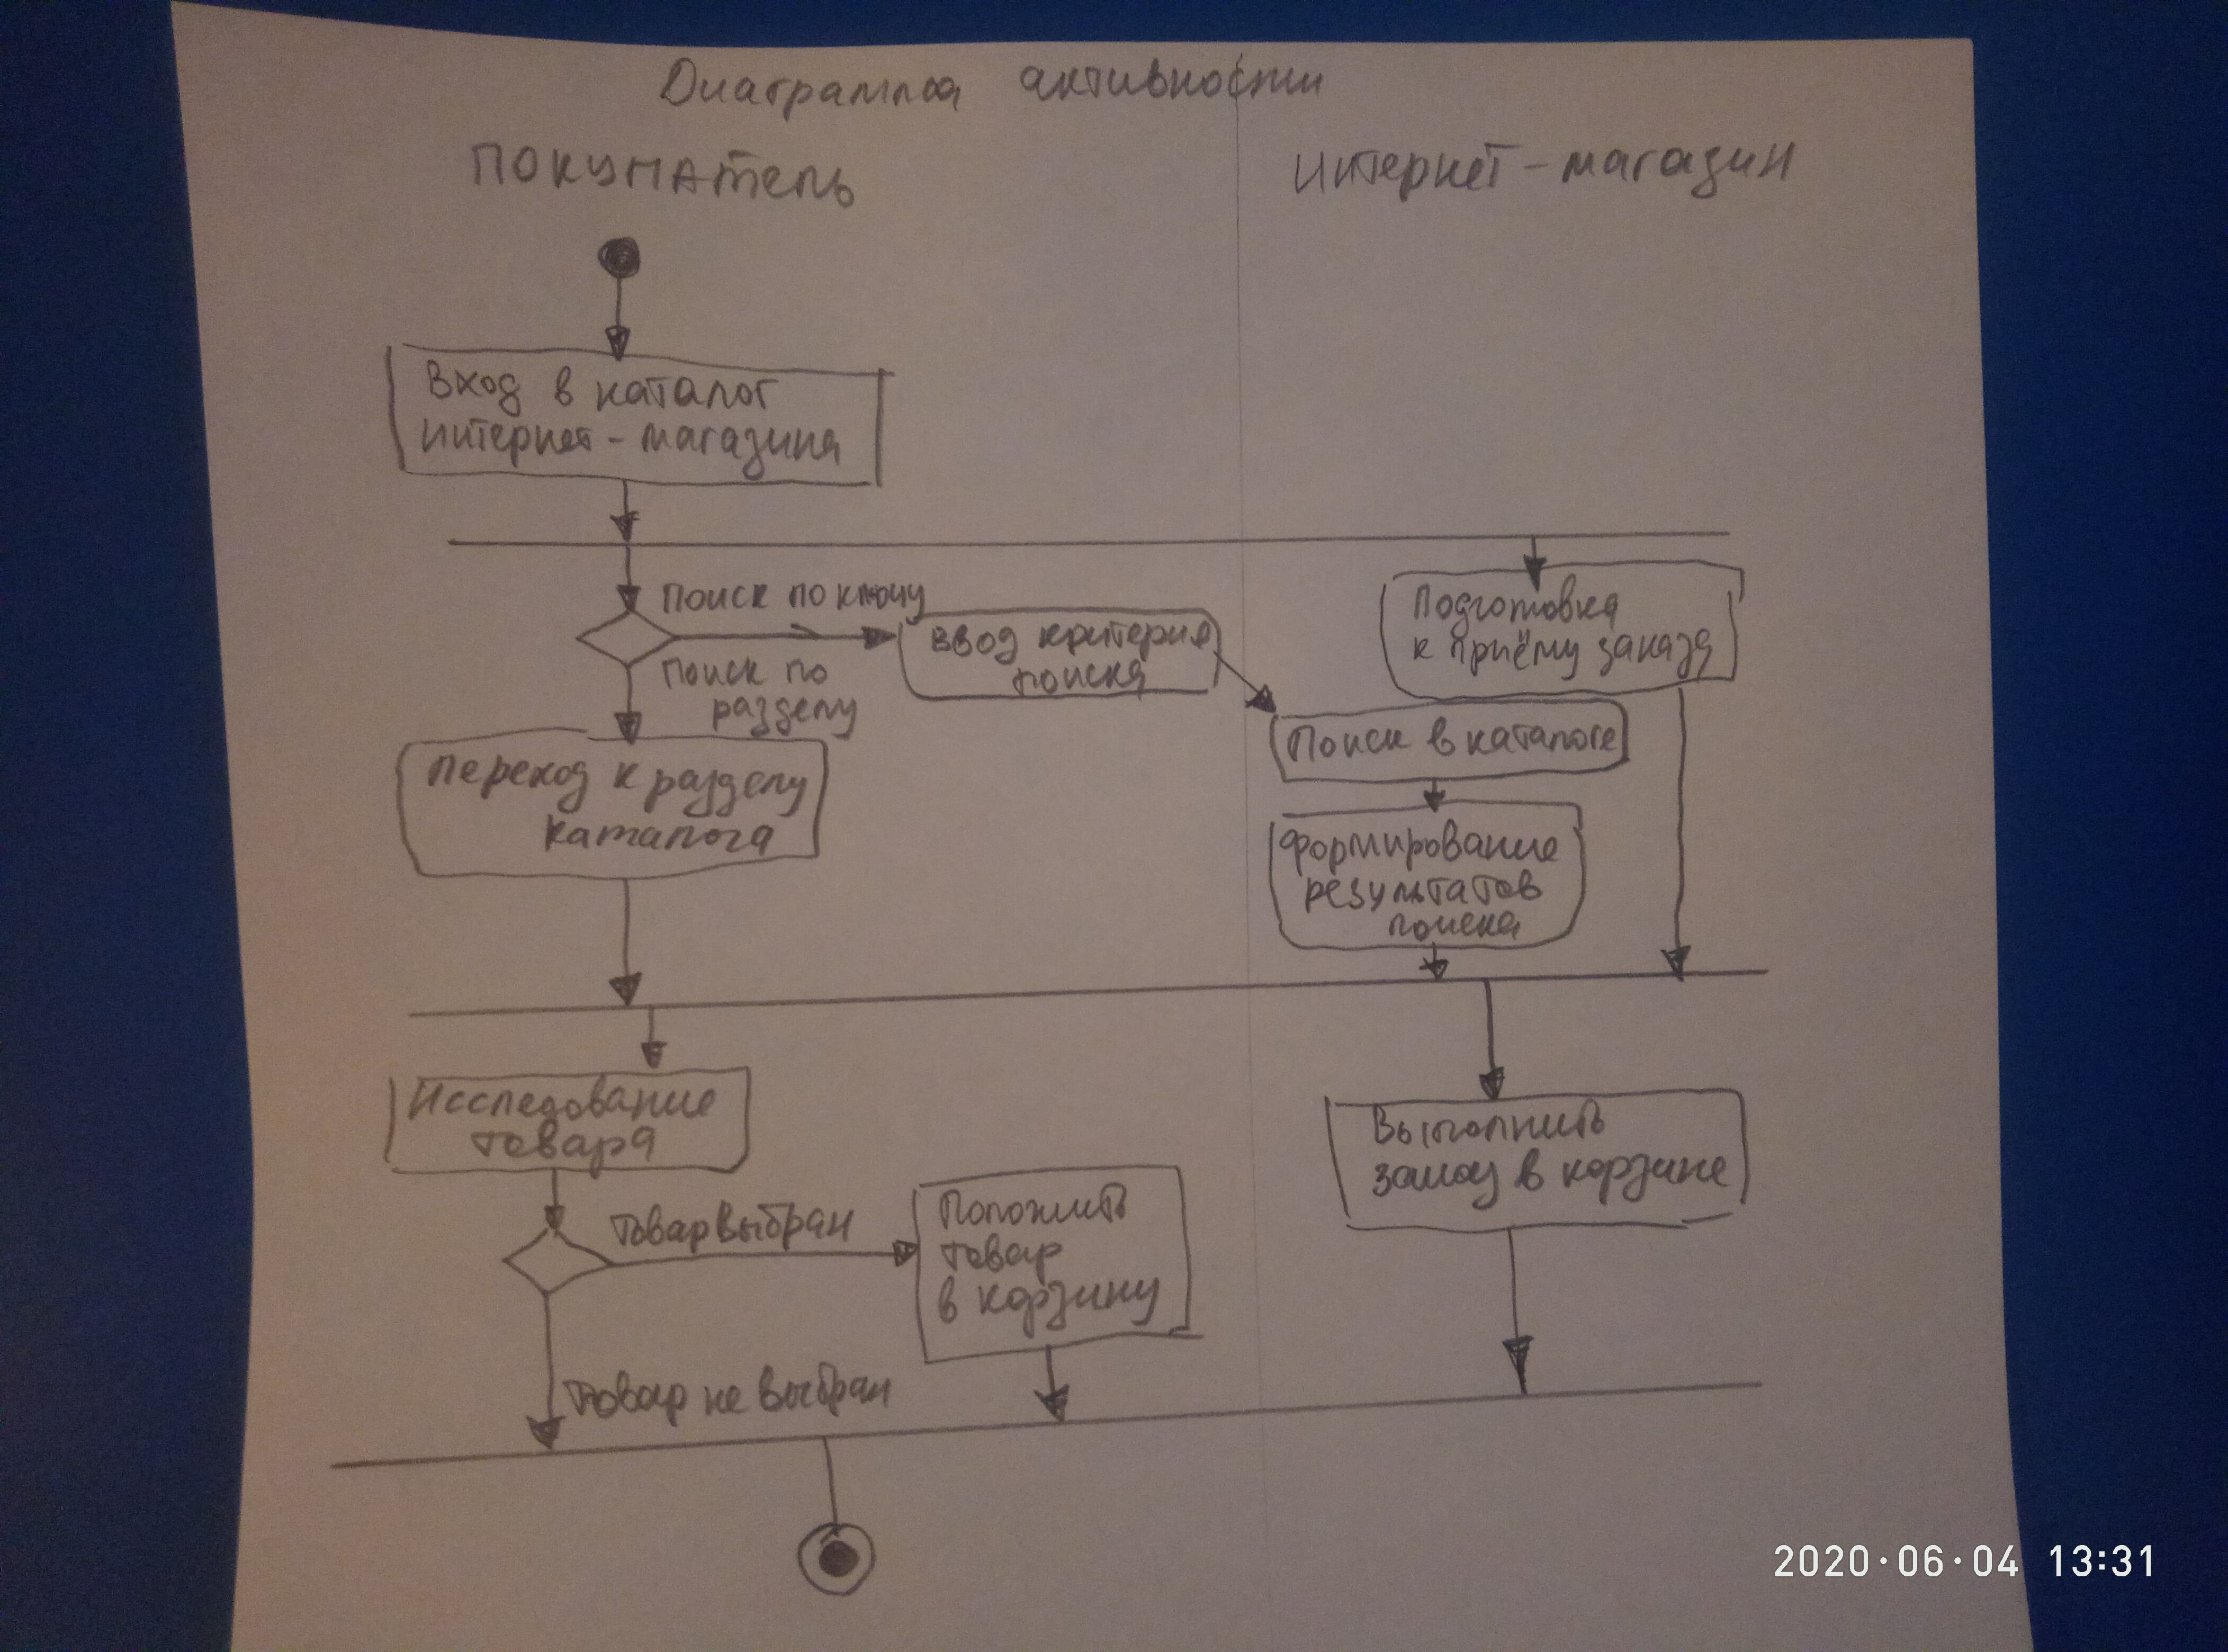 Диаграмма активности
Покупатель
Интернет-магазин
Вход в каталог
интернет-магазина
Поиск по ключу
Поиск по
разделу
Ввод критерия
поиска
Подготовка
к приёму заказа
Поиск в каталоге
Переход к разделу
каталога
Формирование
результатов
поиска
Исследование
товара
Товар выбран
Положить
товар
в корзину
Выполнить
заказ в корзине
Товар не выбран
2020·06·04 13:31